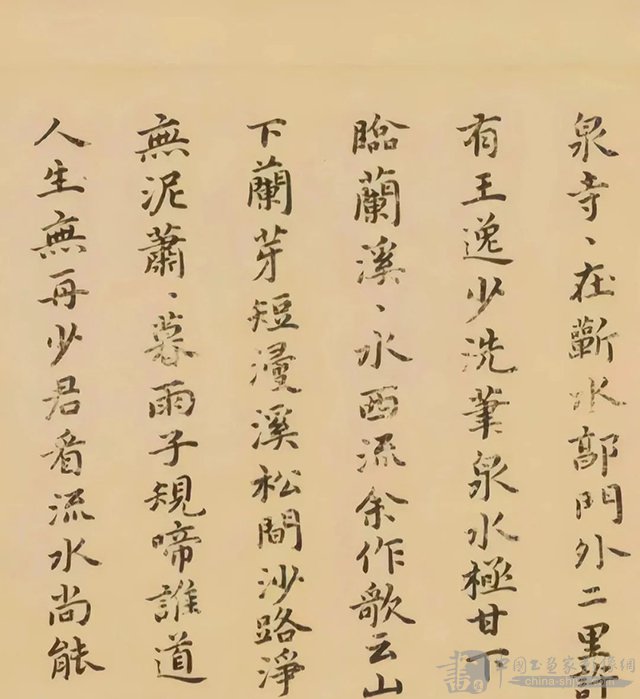 泉寺、在蘄水郭門外二里許
有王逸少洗筆泉水極甘下
臨蘭溪、水西流余作歌云山
下蘭芽短浸溪松間沙路淨
無泥蕭、暮雨子規啼誰道
人生無再少君看流水尚能
中国书画家影像网
china-shj